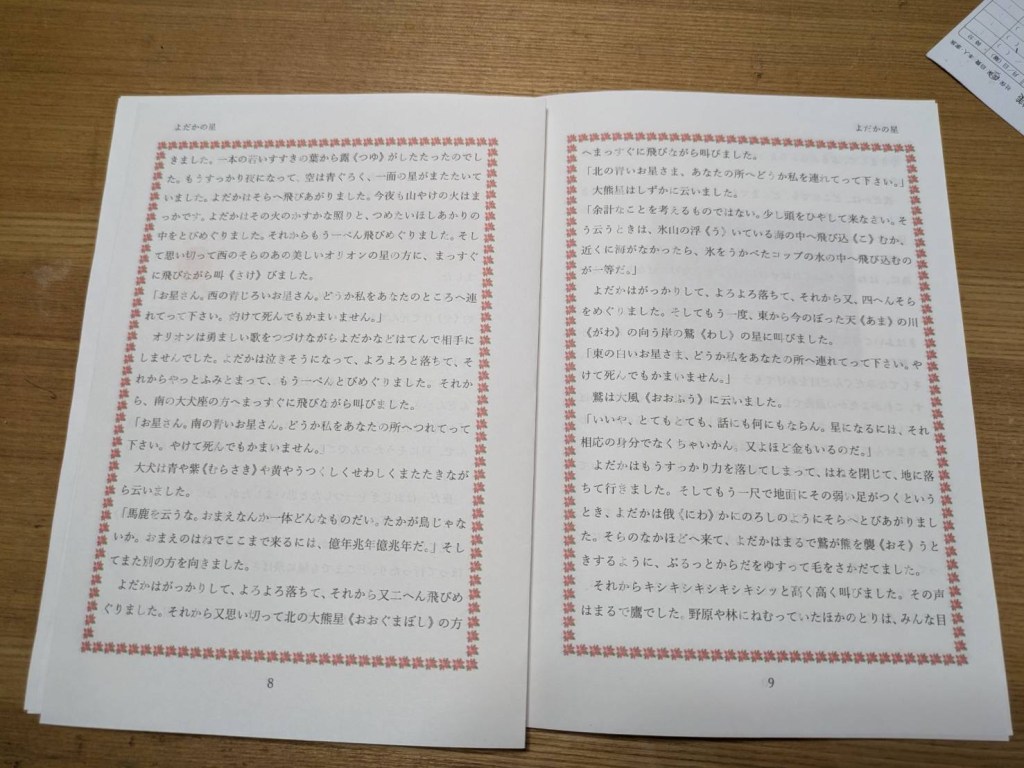 よだかの星
きました。一本の若いすすきの葉から露《つゆ》がしたたったのでし
た。もうすっかり夜になって、空は青ぐろく、一面の星がまたたいて
いました。よだかはそらへ飛びあがりました。今夜も山やけの火はま
っかです。よだかはその火のかすかな照りと、つめたいほしあかりの
中をとびめぐりました。それからもう一ぺん飛びめぐりました。そし
て思い切って西のそらのあの美しいオリオンの星の方に、まっすぐ
に飛びながら叫《さけ》びました。
「お星さん。西の青じろいお星さん。どうか私をあなたのところへ連
れてって下さい。灼けて死んでもかまいません。」
オリオンは勇ましい歌をつづけながらよだかなどはてんで相手に
しませんでした。よだかは泣きそうになって、よろよろと落ちて、そ
れからやっとふみとまって、もう一ぺんとびめぐりました。それか
ら、南の大犬座の方へまっすぐに飛びながら叫びました。
「お星さん。南の青いお星さん。どうか私をあなたの所へつれてって
下さい。やけて死んでもかまいません。」
大犬は青や紫《むらさき》や黄やうつくしくせわしくまたたきなが
ら云いました。
「馬鹿を云うな。おまえなんか一体どんなものだい。たかが鳥じゃな
いか。おまえのはねでここまで来るには、億年兆年億兆年だ。」そし
てまた別の方を向きました。
よだかはがっかりして、よろよろ落ちて、それから又二へん飛びめ
ぐりました。それから又思い切って北の大熊星《おおぐまぼし》の方
8
よだかの星
へまっすぐに飛びながら叫びました。
「北の青いお星さま、あなたの所へどうか私を連れてって下さい。」
大熊星はしずかに云いました。
「余計なことを考えるものではない。少し頭をひやして来なさい。そ
う云うときは、氷山の浮《う》いている海の中へ飛び込《こ》むか、
近くに海がなかったら、氷をうかべたコップの水の中へ飛び込むの
が一等だ。」
よだかはがっかりして、よろよろ落ちて、それから又、四へんそら
をめぐりました。そしてもう一度、東から今のぼった天《あま》の川
《がわ》の向う岸の鷲《わし》の星に叫びました。
「東の白いお星さま、どうか私をあなたの所へ連れてって下さい。や
けて死んでもかまいません。」
鷲は大風《おおふう》に云いました。
「いいや、とてもとても、話にも何にもならん。星になるには、それ
相応の身分でなくちゃいかん。又よほど金もいるのだ。」
よだかはもうすっかり力を落してしまって、はねを閉じて、地に落
ちて行きました。そしてもう一尺で地面にその弱い足がつくという
とき、よだかは俄《にわ》かにのろしのようにそらへとびあがりまし
た。そらのなかほどへ来て、よだかはまるで鷲が熊を襲《おそ》うと
きするように、ぶるっとからだをゆすって毛をさかだてました。
それからキシキシキシキシキシッと高く高く叫びました。その声
はまるで鷹でした。野原や林にねむっていたほかのとりは、みんな目
9